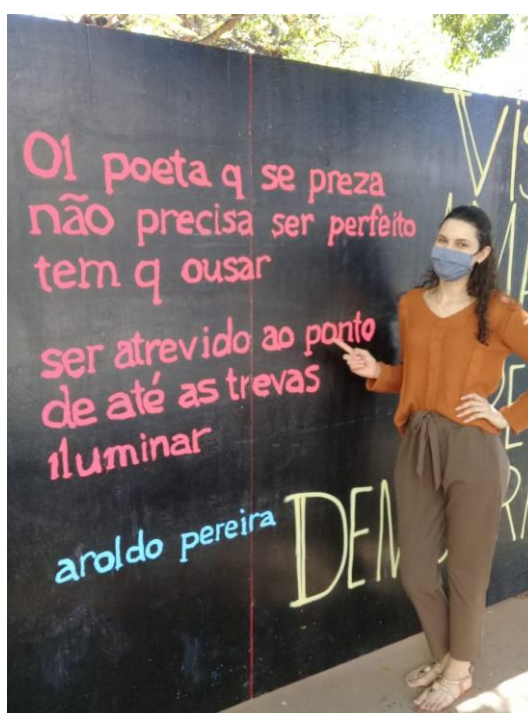 01 poeta q se preza
não precisa ser perfeito
tem q ousar
ser atrevido ao ponto
de até as trevas
iluminar
aroldo pereira